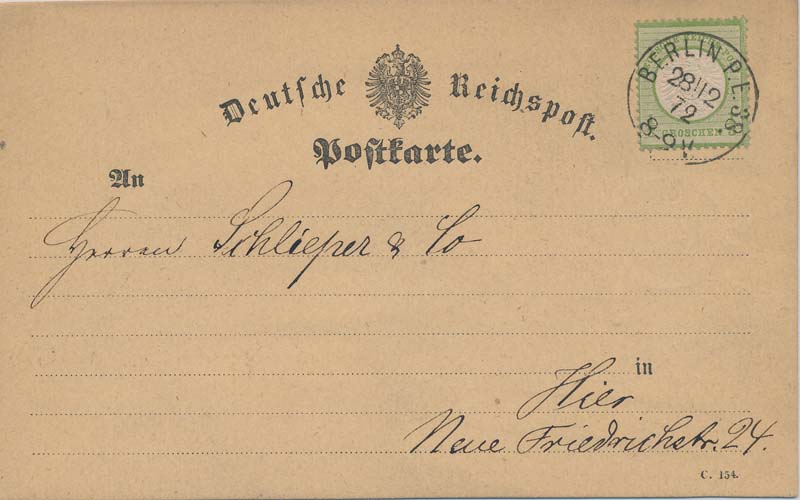 Deutsche Reichspost.
Postkarte.
BERLIN P.E. 38
28 12
72
8-9 V
GROSCHEN
An
Herren Schlieper & Co
in
Hier
Neue Friedrichstr. 24.
C. 154.